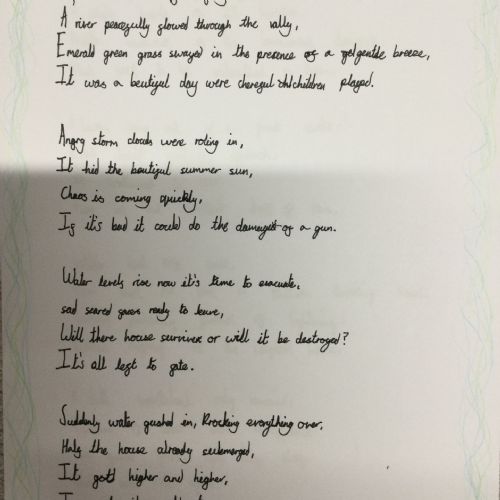 A river peacefully flowed through the vally,
Emerald green grass swayed in the presence of a gentle breeze,
It was a beutiful day were chereful children played.
Angry storm clouds were roling in,
It hid the beutiful summer sun,
Chaos is coming quickly,
If it's bad it could do the damage of a gun.
Water levels rise now it's time to evacuate,
sad scared faces ready to leave,
Will there house survive or will it be destroyed?
It's all left to fate.
Suddenly water gushed in, knocking everything over,
Half the house already submerged,
It got higher and higher,